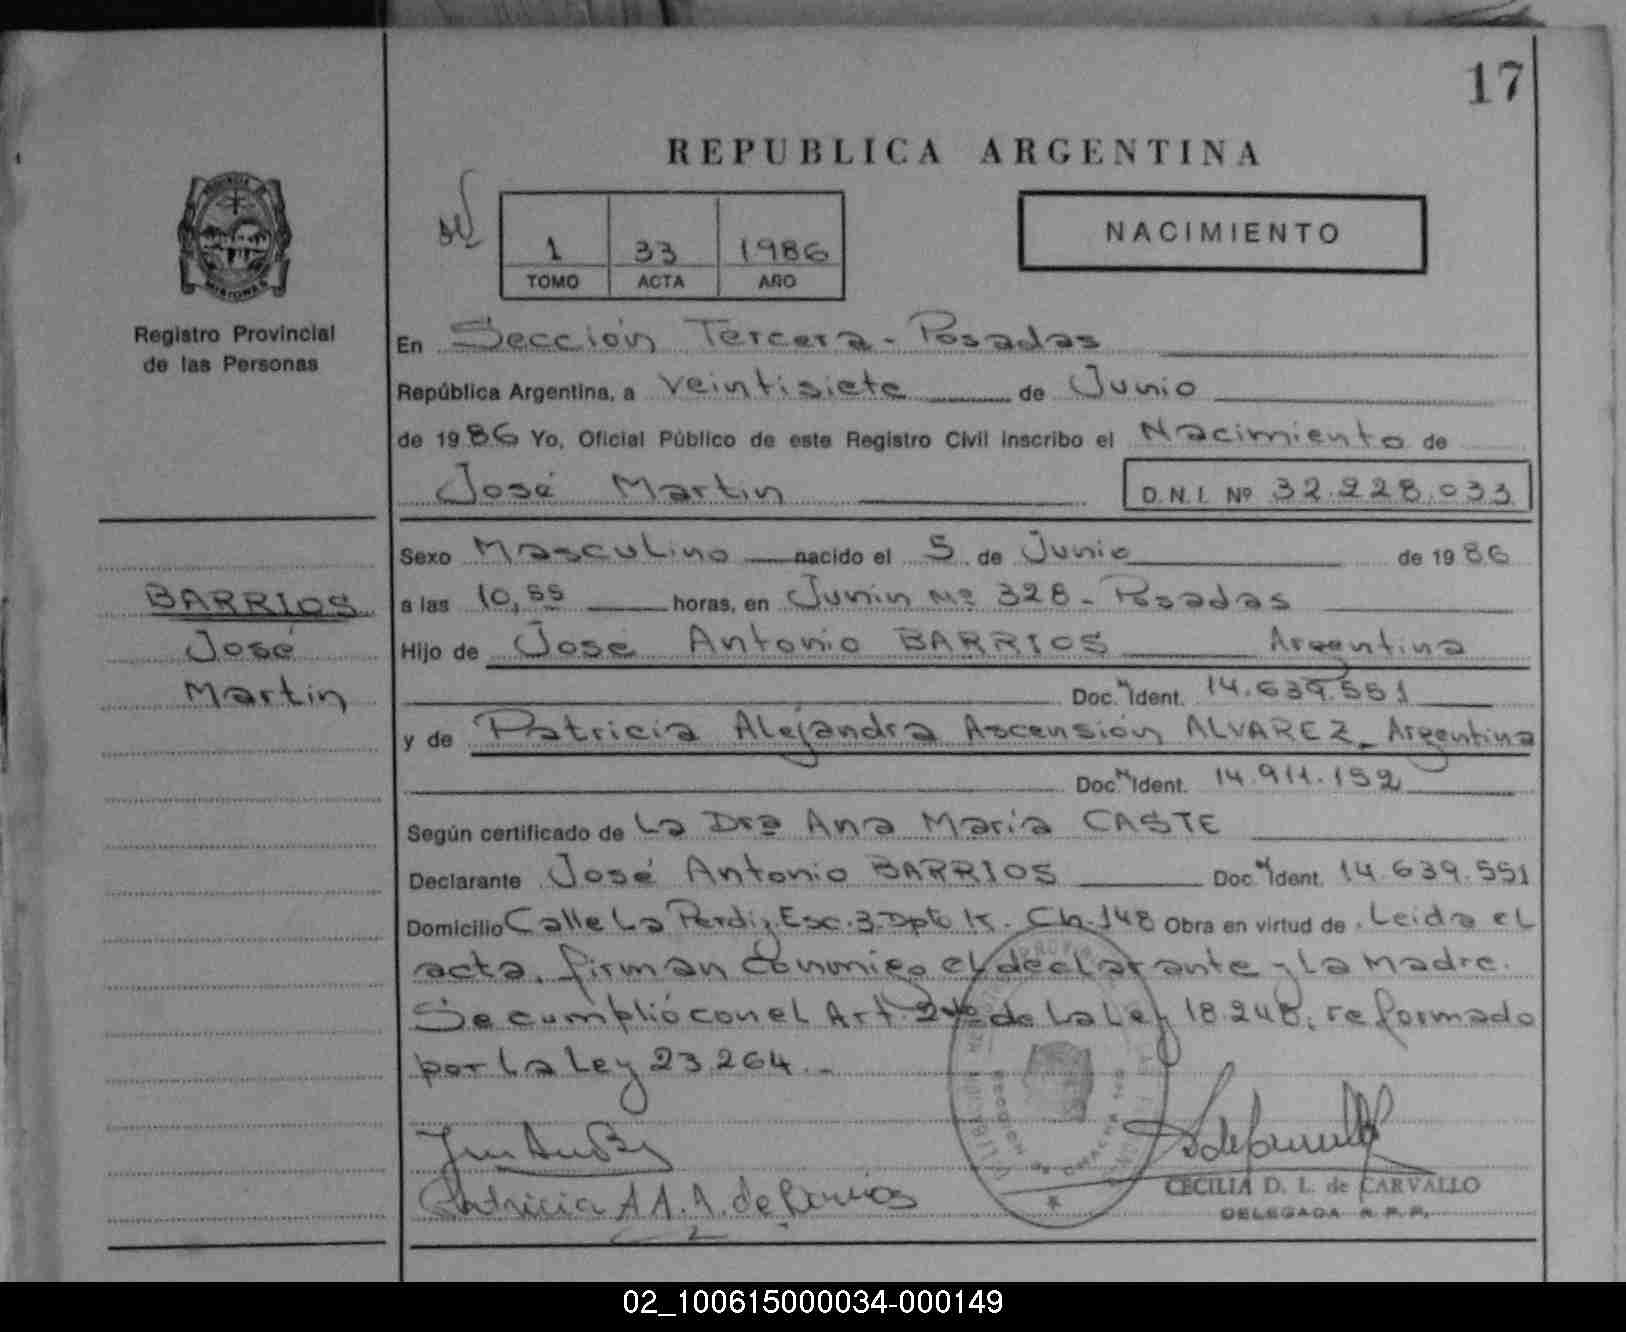 17
REPUBLICA ARGENTINA
1 33 1986
TOMO ACTA AÑO
NACIMIENTO
Registro Provincial
de las Personas
En Sección Tercera - Posadas
República Argentina, a veintisiete de Junio
de 1986 Yo, Oficial Público de este Registro Civil inscribo el Nacimiento de
José Martin D.N.I. Nº 32.228.033
Sexo Masculino nacido el 5 de Junio de 1986
BARRIOS
José
Martin
a las 10,55 horas, en Junín Nº 328 - Posadas
Hijo de José Antonio BARRIOS Argentina
Doc. Nº Ident. 14.639.551
y de Patricia Alejandra Ascensión ALVAREZ - Argentina
Doc. Nº Ident. 14.911.152
Según certificado de La Dra Ana María CASTE
Declarante José Antonio BARRIOS Doc. Nº Ident. 14.639.551
Domicilio Calle La Perdiz Esc. 3 Dpto K. Ch. 148 Obra en virtud de Leida el
acta, firman conmigo el declarante y la madre.
Se cumplió con el Art. 2do de la Ley 18.248, reformado
por la Ley 23.264.-
Patricia A A. A. de Barrios
CECILIA D. L. de CARVALLO
DELEGADA R.P.P.
02_100615000034-000149